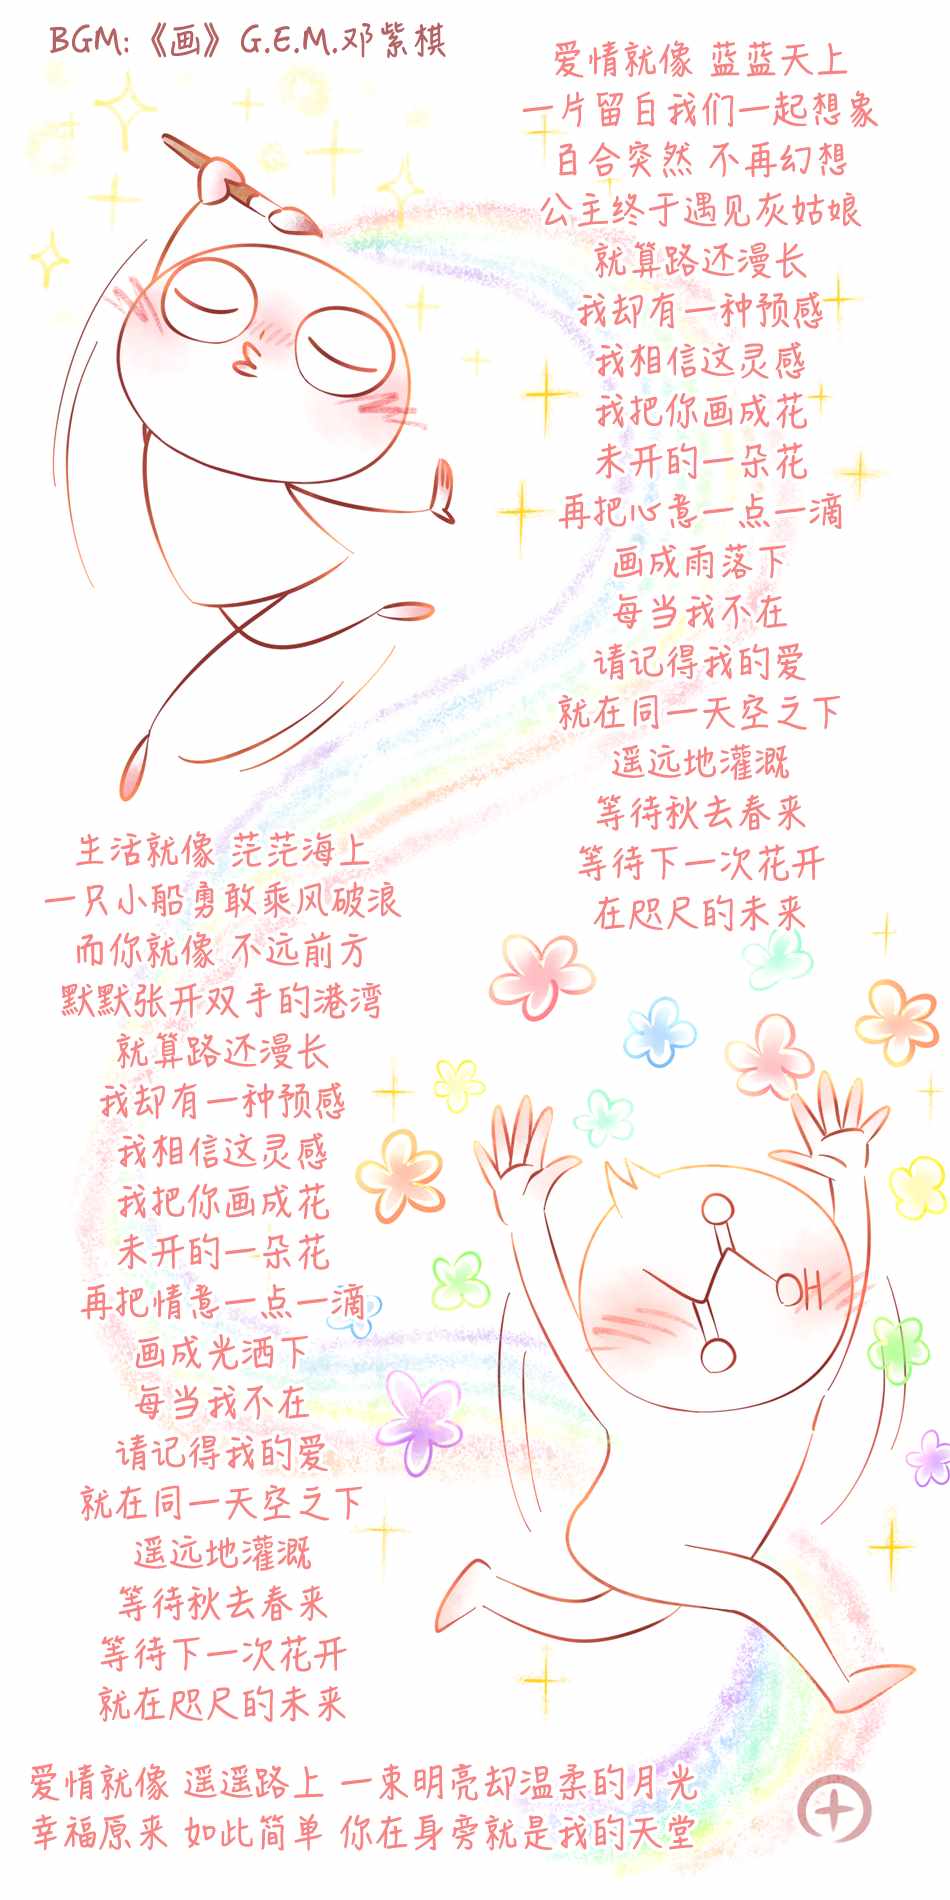 BGM:《画》G.E.M.邓紫棋
爱情就像 蓝蓝天上
一片留白我们一起想象
百合突然 不再幻想
公主终于遇见灰姑娘
就算路还漫长
我却有一种预感
我相信这灵感
我把你画成花
未开的一朵花
再把心意一点一滴
画成雨落下
每当我不在
请记得我的爱
就在同一天空之下
遥远地灌溉
等待秋去春来
等待下一次花开
在咫尺的未来
生活就像 茫茫海上
一只小船勇敢乘风破浪
而你就像 不远前方
默默张开双手的港湾
就算路还漫长
我却有一种预感
我相信这灵感
我把你画成花
未开的一朵花
再把情意一点一滴
画成光洒下
每当我不在
请记得我的爱
就在同一天空之下
遥远地灌溉
等待秋去春来
等待下一次花开
就在咫尺的未来
OH
爱情就像 遥遥路上 一束明亮却温柔的月光
幸福原来 如此简单 你在身旁就是我的天堂